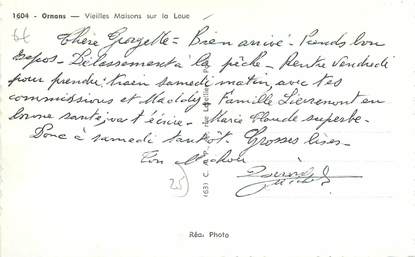 1604 - Ornans — Vieilles Maisons sur la Loue
Chère Georgette = Bien arrivé - Prends bon
repos - Délassement à la pêche - Rentre Vendredi
pour prendre train samedi matin, avec tes
commissions et = Famille Lievremont en
bonne santé, va t'écrire - Marie Claude superbe -
Donc à samedi tantôt. Grosses bises -
Ton
25
Réa. Photo